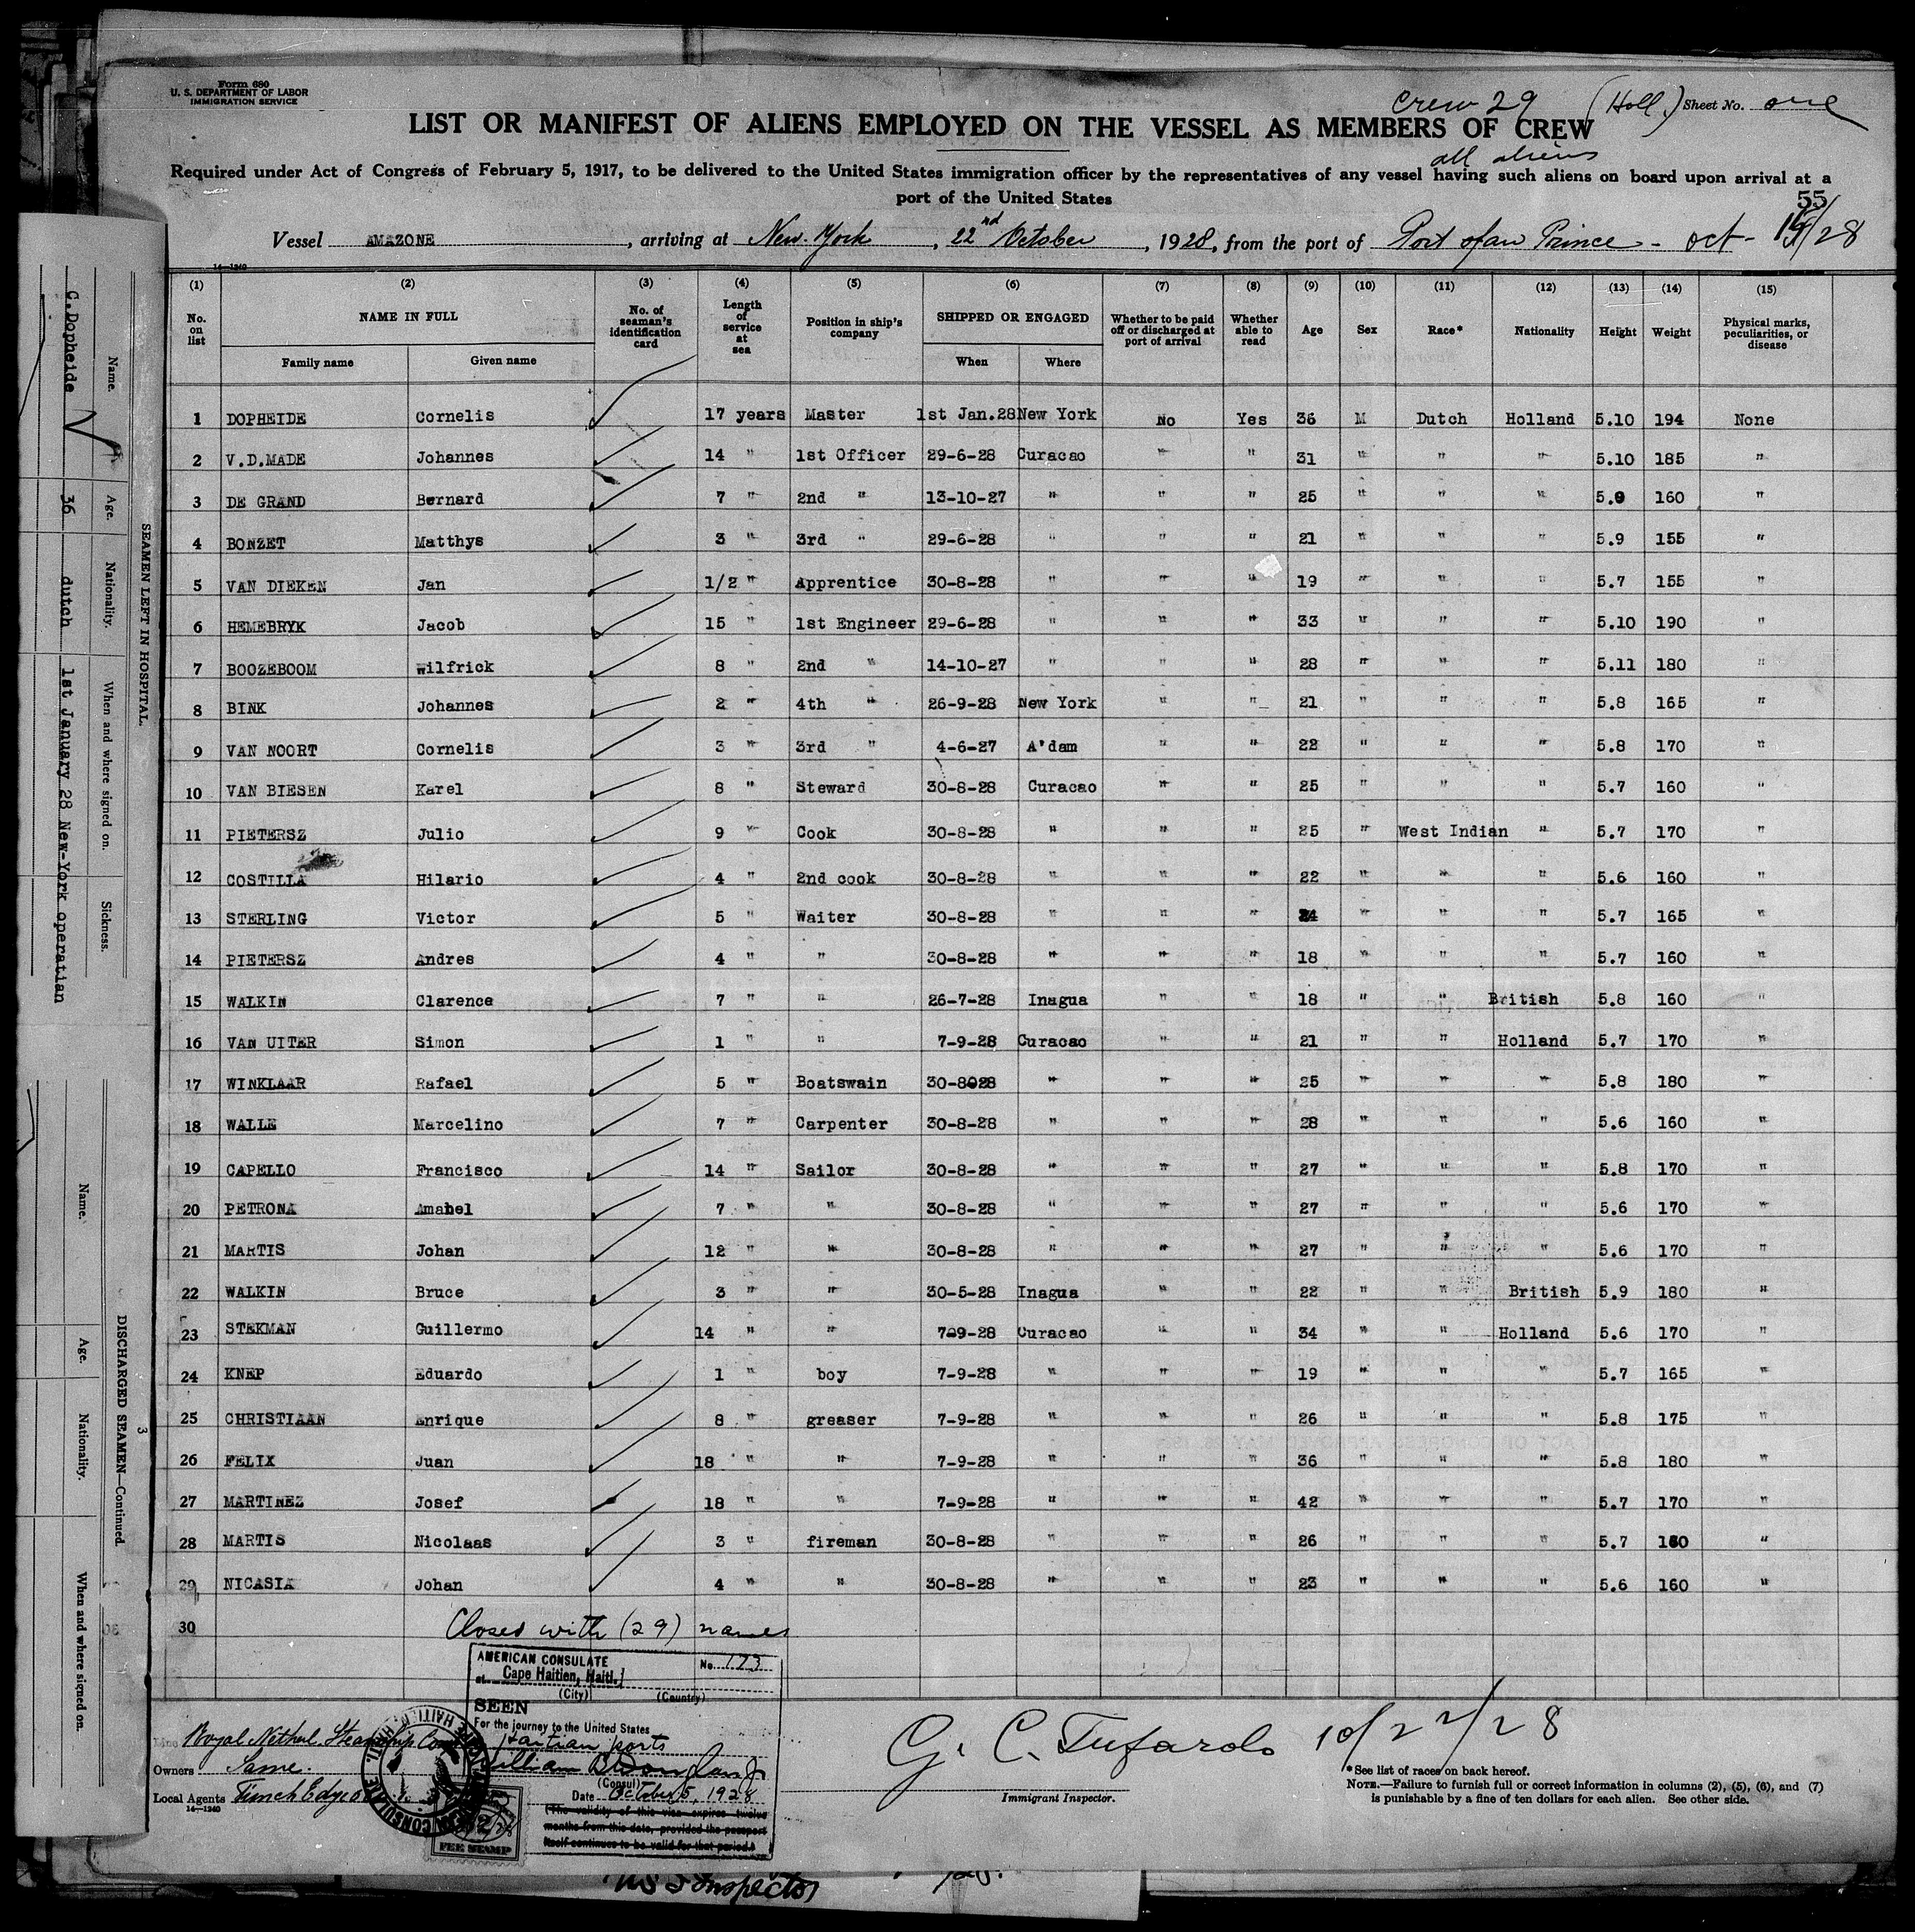 Form 680
U. S. DEPARTMENT OF LABOR
IMMIGRATION SERVICE
Crew 29 (Holl.) Sheet No. one
LIST OR MANIFEST OF ALIENS EMPLOYED ON THE VESSEL AS MEMBERS OF CREW
all aliens
Required under Act of Congress of February 5, 1917, to be delivered to the United States immigration officer by the representatives of any vessel having such aliens on board upon arrival at a
port of the United States
55
Vessel AMAZONE, arriving at New-York, 22nd October, 1928, from the port of Port of au Prince - Oct- /28
14—1240
(1) (2) (3) (4) (5) (6) (7) (8) (9) (10) (11) (12) (13) (14) (15)
No. on list NAME IN FULL No. of seaman's identification card Length of service at sea Position in ship's company SHIPPED OR ENGAGED Whether to be paid off or discharged at port of arrival Whether able to read Age Sex Race* Nationality Height Weight Physical marks, peculiarities, or disease
Family name Given name When Where
1 DOPHEIDE Cornelis 17 years Master 1st Jan.28 New York No Yes 36 M Dutch Holland 5.10 194 None
2 V.D.MADE Johannes 14 " 1st Officer 29-6-28 Curacao " " 31 " " " 5.10 185 "
3 DE GRAND Bernard 7 " 2nd " 13-10-27 " " " 25 " " " 5.9 160 "
4 BONZET Matthys 3 " 3rd " 29-6-28 " " " 21 " " " 5.9 155 "
5 VAN DIEKEN Jan 1/2 " Apprentice 30-8-28 " " " 19 " " " 5.7 155 "
6 HEMEBRYK Jacob 15 " 1st Engineer 29-6-28 " " " 33 " " " 5.10 190 "
7 BOOZEBOOM Wilfrick 8 " 2nd " 14-10-27 " " " 28 " " " 5.11 180 "
8 BINK Johannes 2 " 4th " 26-9-28 New York " " 21 " " " 5.8 165 "
9 VAN NOORT Cornelis 3 " 3rd " 4-6-27 A'dam " " 22 " " " 5.8 170 "
10 VAN BIESEN Karel 8 " Steward 30-8-28 Curacao " " 25 " " " 5.7 160 "
11 PIETERSZ Julio 9 " Cook 30-8-28 " " " 25 " West Indian " 5.7 170 "
12 COSTILLA Hilario 4 " 2nd cook 30-8-28 " " " 22 " " " 5.6 160 "
13 STERLING Victor 5 " Waiter 30-8-28 " " " 24 " " " 5.7 165 "
14 PIETERSZ Andres 4 " " 30-8-28 " " " 18 " " " 5.7 160 "
15 WALKIN Clarence 7 " " 26-7-28 Inagua " " 18 " " British 5.8 160 "
16 VAN UITER Simon 1 " " 7-9-28 Curacao " " 21 " " Holland 5.7 170 "
17 WINKLAAR Rafael 5 " Boatswain 30-8028 " " " 25 " " " 5.8 180 "
18 WALLE Marcelino 7 " Carpenter 30-8-28 " " " 28 " " " 5.6 160 "
19 CAPELLO Francisco 14 " Sailor 30-8-28 " " " 27 " " " 5.8 170 "
20 PETRONA Amabel 7 " " 30-8-28 " " " 27 " " " 5.6 170 "
21 MARTIS Johan 12 " " 30-8-28 " " " 27 " " " 5.6 170 "
22 WALKIN Bruce 3 " " 30-5-28 Inagua " " 22 " " British 5.9 180 "
23 STEKMAN Guillermo 14 " " 709-28 Curacao " " 34 " " Holland 5.6 170 "
24 KNEP Eduardo 1 " boy 7-9-28 " " " 19 " " " 5.7 165 "
25 CHRISTIAAN Enrique 8 " greaser 7-9-28 " " " 26 " " " 5.8 175 "
26 FELIX Juan 18 " " 7-9-28 " " " 36 " " " 5.8 180 "
27 MARTINEZ Josef 18 " " 7-9-28 " " " 42 " " " 5.7 170 "
28 MARTIS Nicolaas 3 " fireman 30-8-28 " " " 26 " " " 5.7 160 "
29 NICASIA Johan 4 " " 30-8-28 " " " 23 " " " 5.6 160 "
30 Closed with (29) names
AMERICAN CONSULATE No. 123
at Cape Haitien, Haiti.
(City) (Country)
SEEN
For the journey to the United States
Haitian ports
(Consul)
Date October 5, 1928
(The validity of this visa expires twelve
months from this date, provided the passport
itself continues to be valid for that period.)
FEE STAMP
Line Royal Nethel. Steamship Com
Owners Same.
Local Agents
14—1240
G. C. Tufarolo 10/22/28
Immigrant Inspector.
*See list of races on back hereof.
NOTE.—Failure to furnish full or correct information in columns (2), (5), (6), and (7)
is punishable by a fine of ten dollars for each alien. See other side.
Inspector
SEAMEN LEFT IN HOSPITAL.
Name. Age. Nationality. When and where signed on. Sickness.
C.Dopheide 36 dutch 1st January 28 New-York operatian
DISCHARGED SEAMEN—Continued.
Name. Age. Nationality. When and where signed on.
3